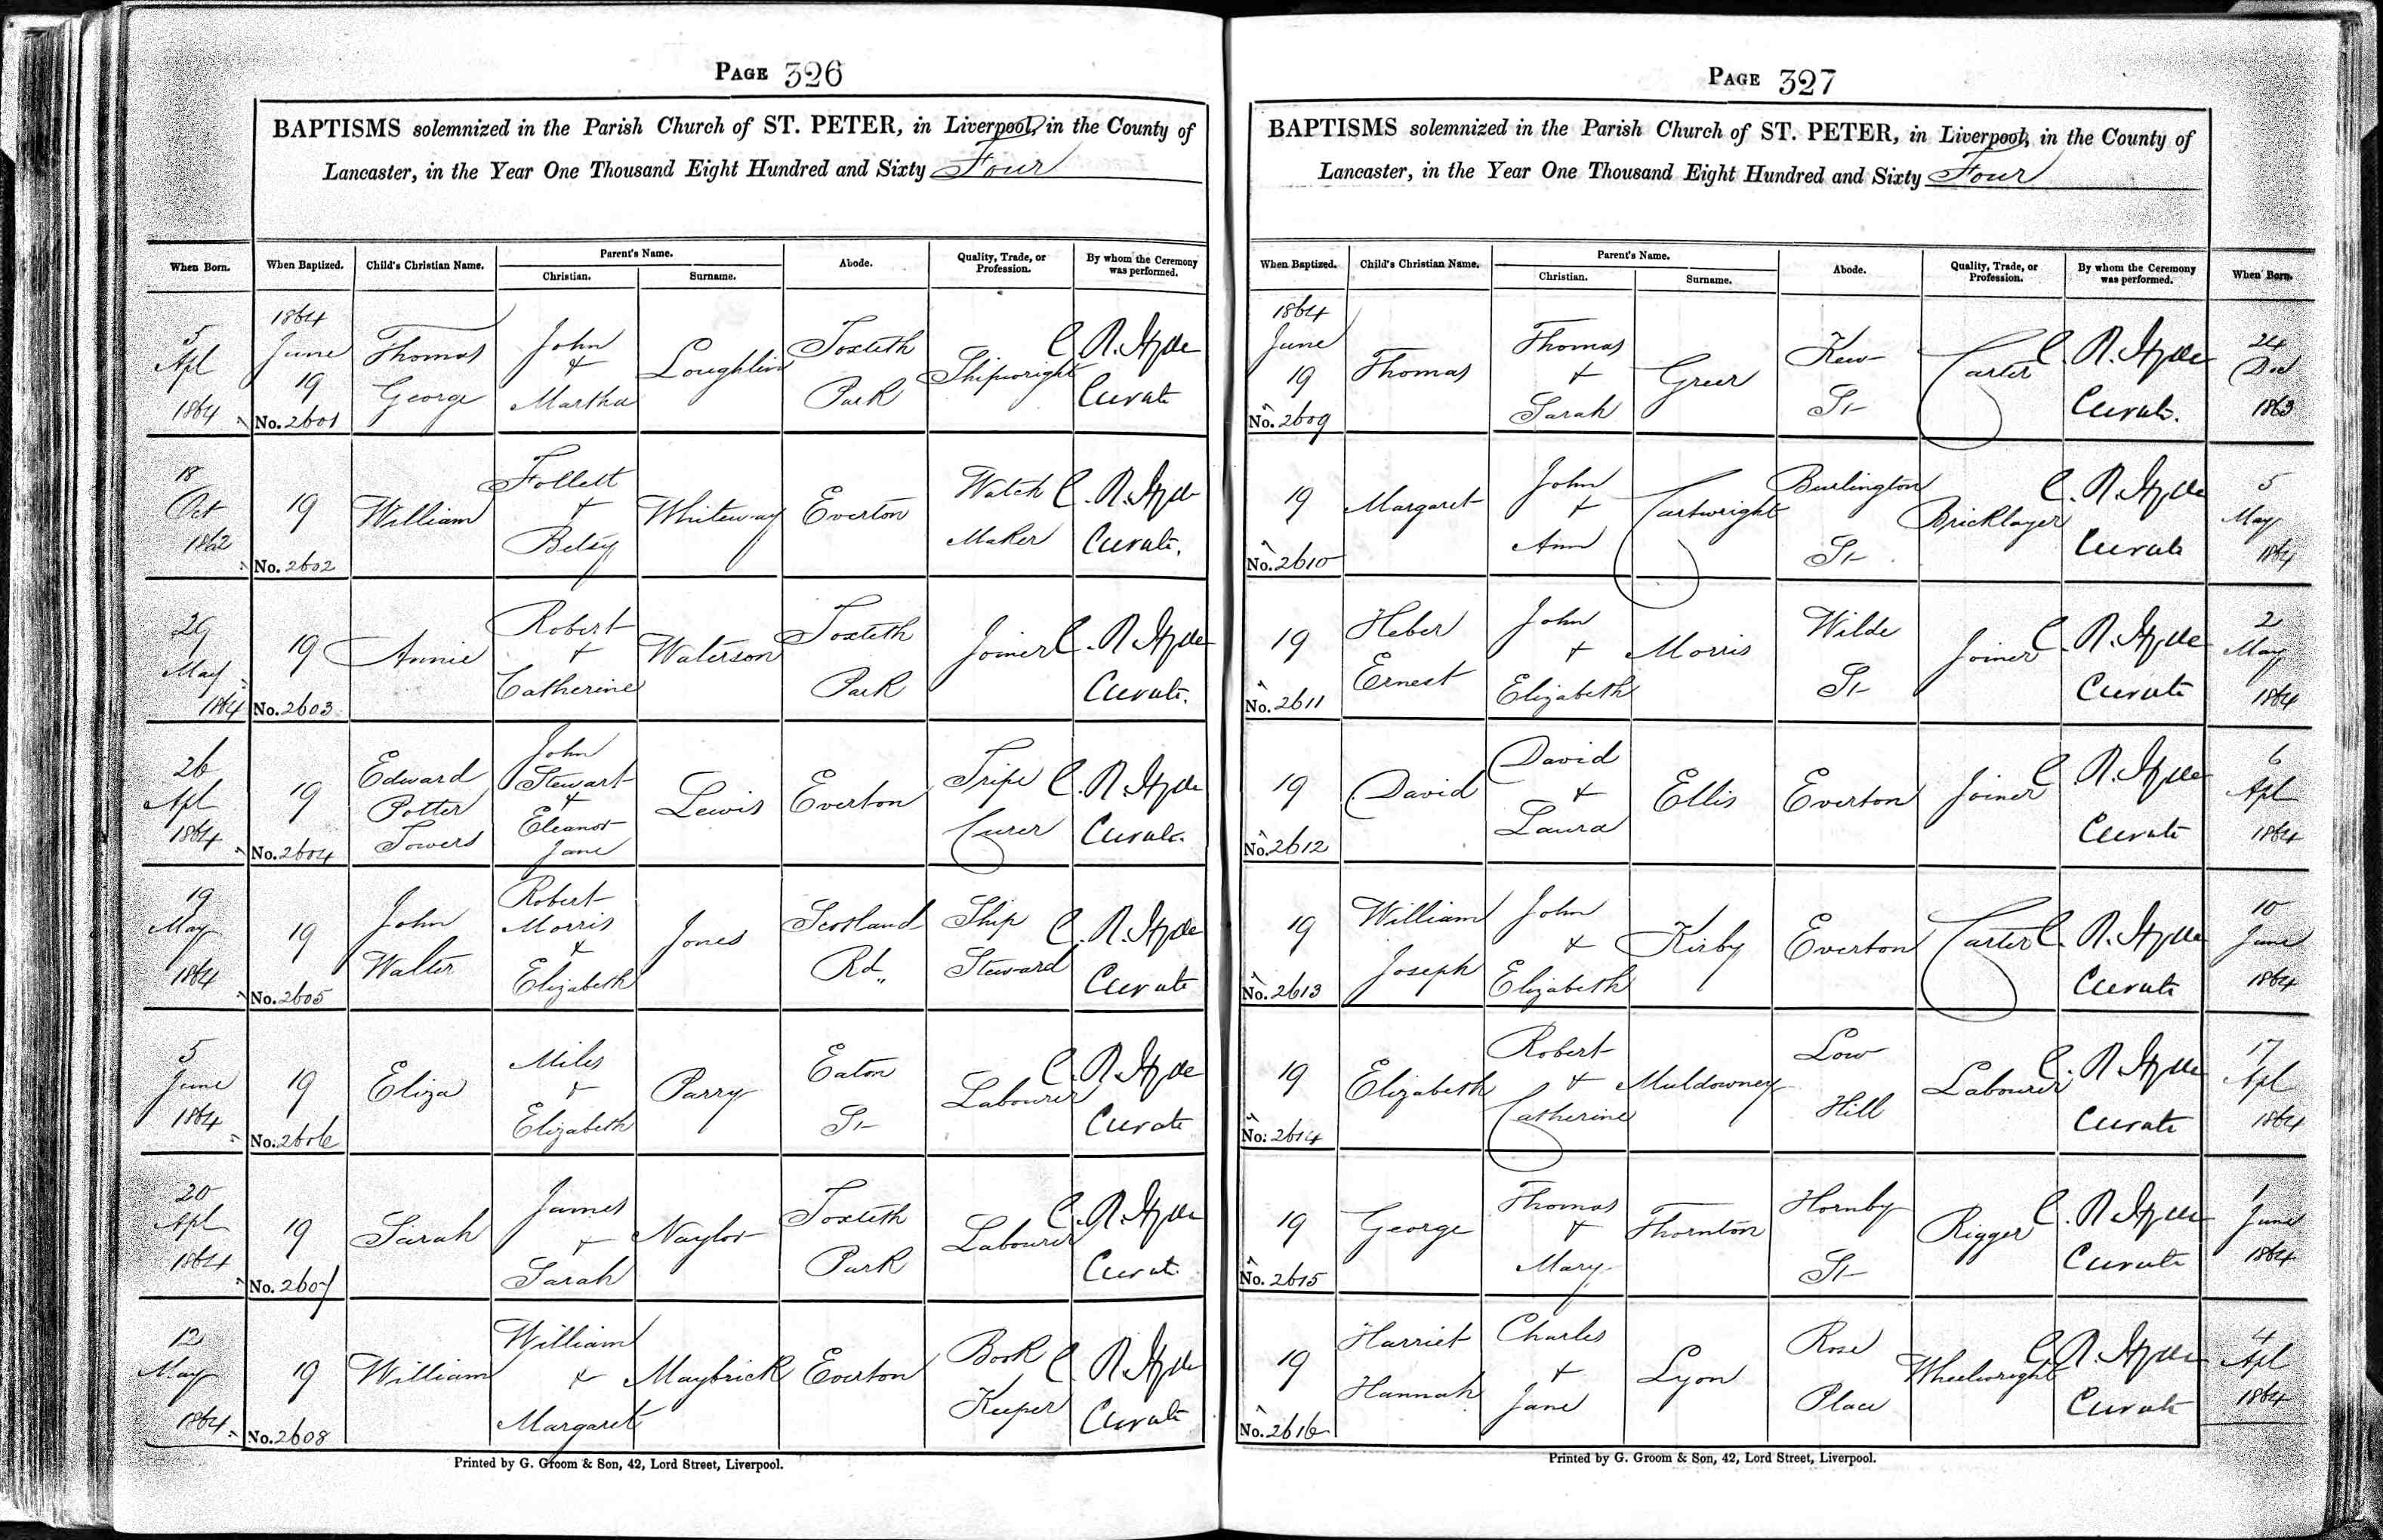 PAGE 326
BAPTISMS solemnized in the Parish Church of ST. PETER, in Liverpool, in the County of
Lancaster, in the Year One Thousand Eight Hundred and Sixty Four
When Born. When Baptized. Child's Christian Name. Parent's Name. Christian. Surname. Abode. Quality, Trade, or Profession. By whom the Ceremony was performed.
5 Apl 1864 1864 June 19 No. 2601 Thomas George John + Martha Loughlin Toxteth Park Shipwright C. R. Hyde Curate
18 Oct 1862 19 No. 2602 William Follett + Betsy Whiteway Everton Watch Maker C. R. Hyde Curate.
29 May 1864 19 No. 2603 Annie Robert + Catherine Waterson Toxteth Park Joiner C. R. Hyde Curate.
26 Apl 1864 19 No. 2604 Edward Potter Towers John Stewart + Eleanor Jane Lewis Everton Tripe Curer C. R. Hyde Curate.
19 May 1864 19 No. 2605 John Walter Robert Morris & Elizabeth Jones Scotland Rd. Ship Steward C. R. Hyde Curate
5 June 1864 19 No. 2606 Eliza Miles + Elizabeth Parry Eaton St Labourer C. R. Hyde Curate
20 Apl 1864 19 No. 2607 Sarah James + Sarah Naylor Toxteth Park Labourer C. R. Hyde Curate
12 May 1864 19 No. 2608 William William + Margaret Maybrick Everton Book Keeper C. R. Hyde Curate
Printed by G. Groom & Son, 42, Lord Street, Liverpool.
PAGE 327
BAPTISMS solemnized in the Parish Church of ST. PETER, in Liverpool, in the County of
Lancaster, in the Year One Thousand Eight Hundred and Sixty Four
When Baptized. Child's Christian Name. Parent's Name. Christian. Surname. Abode. Quality, Trade, or Profession. By whom the Ceremony was performed. When Born.
1864 June 19 No. 2609 Thomas Thomas + Sarah Greer Kew St Carter C. R. Hyde Curate. 24 Dec 1863
19 No. 2610 Margaret John + Ann Cartwright Burlington St Bricklayer C. R. Hyde Curate 5 May 1864
19 No. 2611 Heber Ernest John + Elizabeth Morris Wilde St Joiner C. R. Hyde Curate 2 May 1864
19 No. 2612 David David + Laura Ellis Everton Joiner C. R. Hyde Curate 6 Apl 1864
19 No. 2613 William Joseph John & Elizabeth Kirby Everton Carter C. R. Hyde Curate 10 June 1864
19 No. 2614 Elizabeth Robert + Catherine Muldowney Low Hill Labourer C. R. Hyde Curate 17 Apl 1864
19 No. 2615 George Thomas + Mary Thornton Hornby St Rigger C. R. Hyde Curate 1 June 1864
19 No. 2616 Harriet Hannah Charles + Jane Lyon Rose Place Wheelwright C. R. Hyde Curate 4 Apl 1864
Printed by G. Groom & Son, 42, Lord Street, Liverpool.